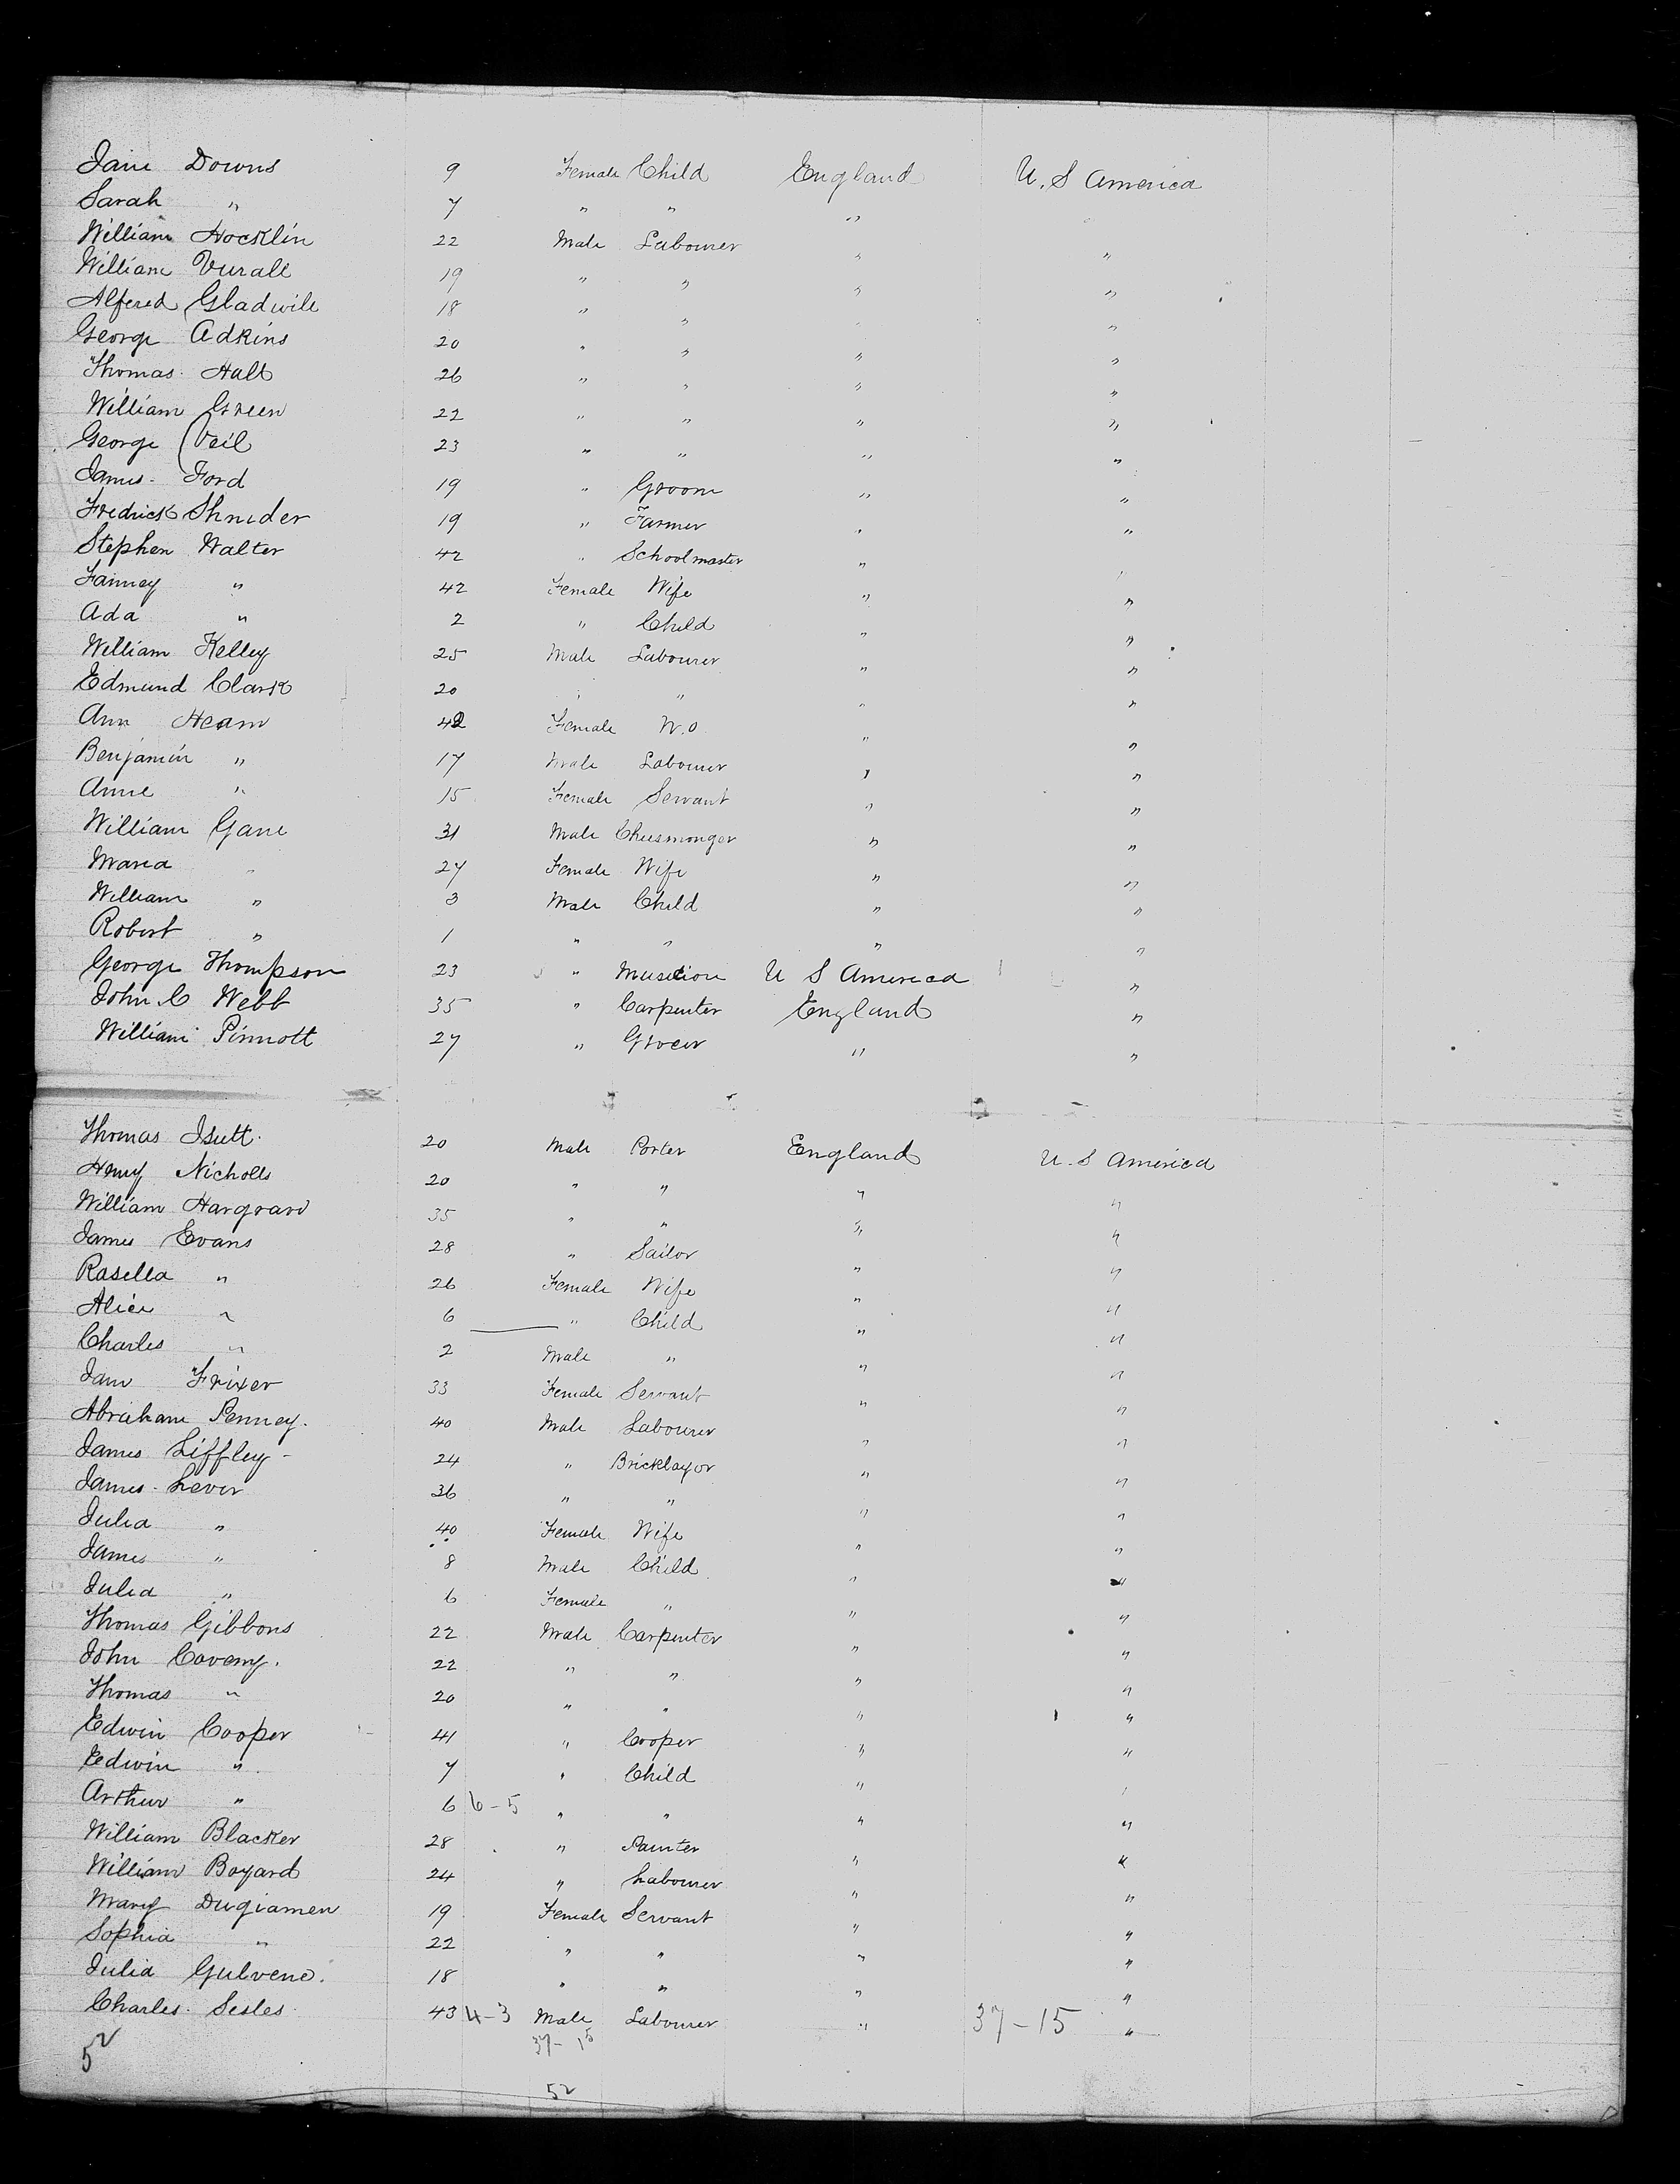 Jane Downs 9 Female Child England U. S America
Sarah " 7 " " "
William Hocklin 22 Male Labourer " "
William Vurall 19 " " " "
Alfered Gladwill 18 " " " "
George Adkins 20 " " " "
Thomas Hall 26 " " " "
William Green 22 " " " "
George Veil 23 " " " "
James Ford 19 " Groom " "
Fredrick Shnider 19 " Farmer " "
Stephen Walter 42 " Schoolmaster " "
Fanney " 42 Female Wife " "
Ada " 2 " Child " "
William Kelley 25 Male Labourer " "
Edmund Clark 20 " " " "
Ann Heam 42 Female W.O " "
Benjamin " 17 Male Labourer " "
Anne " 15 Female Servant " "
William Gane 31 Male Cheesmonger " "
Maria " 27 Female Wife " "
William " 3 Male Child " "
Robert " 1 " " " "
George Thompson 23 " Musicion U S America "
John C Webb 35 " Carpenter England "
William Pinnott 27 " Grocer " "
Thomas Isutt 20 Male Porter England U. S America
Henry Nicholls 20 " " " "
William Hargravd 35 " " " "
James Evans 28 " Sailor " "
Rasella " 26 Female Wife " "
Alice " 6 " Child " "
Charles " 2 Male " " "
Jane Frixer 33 Female Servant " "
Abraham Penney. 40 Male Labourer " "
James Liffley - 24 " Bricklayor " "
James Lever 36 " " " "
Julia " 40 Female Wife " "
James " 8 Male Child " "
Julia " 6 Female " " "
Thomas Gibbons 22 Male Carpenter " "
John Caveny. 22 " " " "
Thomas " 20 " " " "
Edwin Cooper 41 " Cooper " "
Edwin " 7 " Child " "
Arthur " 6 6-5 " " " "
William Blacker 28 " Painter " "
William Boyard 24 " Labourer " "
Mary Dugiamen 19 Female Servant " "
Sophia " 22 " " " "
Julia Gulvene. 18 " " " "
Charles Sesles 43 4-3 Male Labourer " 37-15 "
52 37-15
52